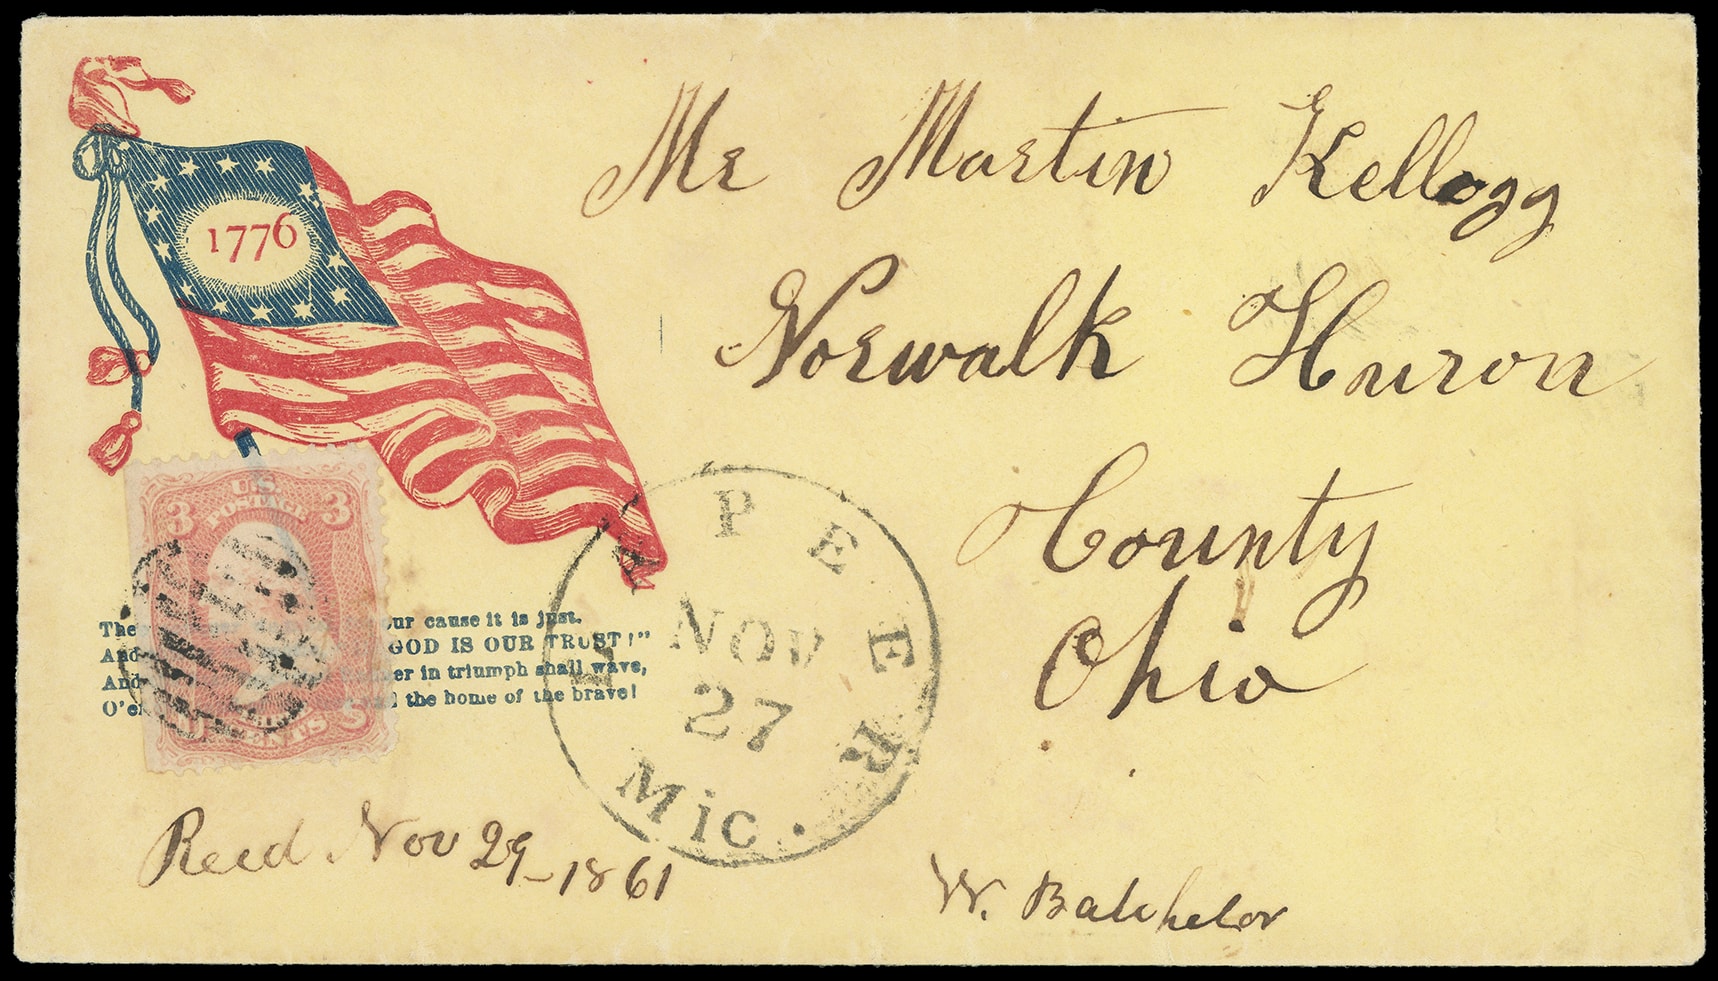 Mr Martin Kellogg
Norwalk Huron
County
Ohio
1776
U.S.
POSTAGE
3 3
CENTS
The our cause it is just.
And GOD IS OUR TRUST!"
And in triumph shall wave,
O'er the home of the brave!
LAPEER
NOV
27
Mic.
Recd Nov 29-1861
W. Batchelor